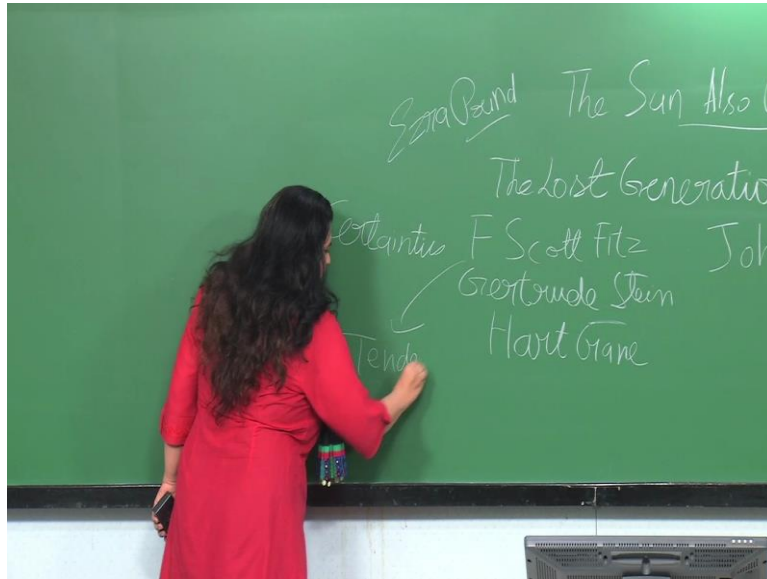 Ezra Pound The Sun Also
The Lost Generatio
Certainties F Scott Fitz Joh
Gertrude Stein
Hart Crane
Tende